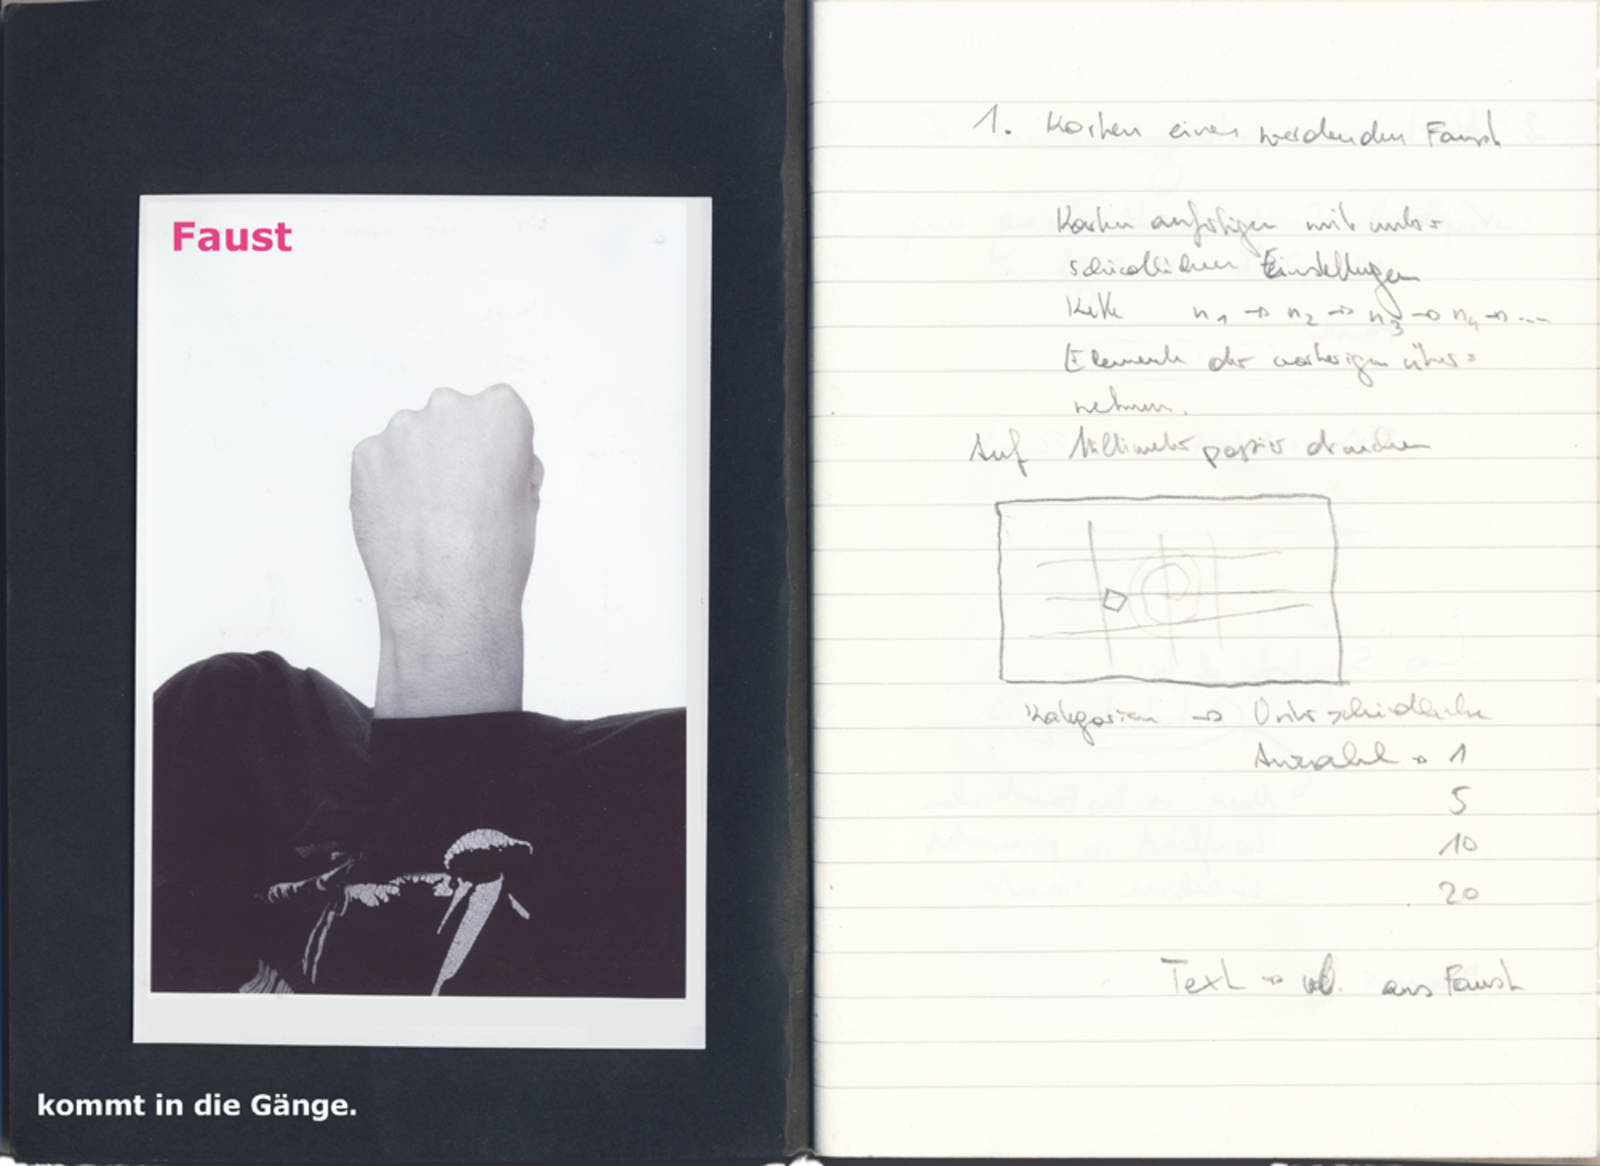 Faust
kommt in die Gänge.
1. Karten eines werdenden Faust
Karten anfertigen mit unter=
schiedlichen Einstellungen
Kette n1 → n2 → n3 → n4 → ...
Elemente der vorherigen über=
nehmen.
Auf Millimeterpapier drucken
Kategorien → Unterschiedliche
Anzahl → 1
5
10
20
Text → aus Faust